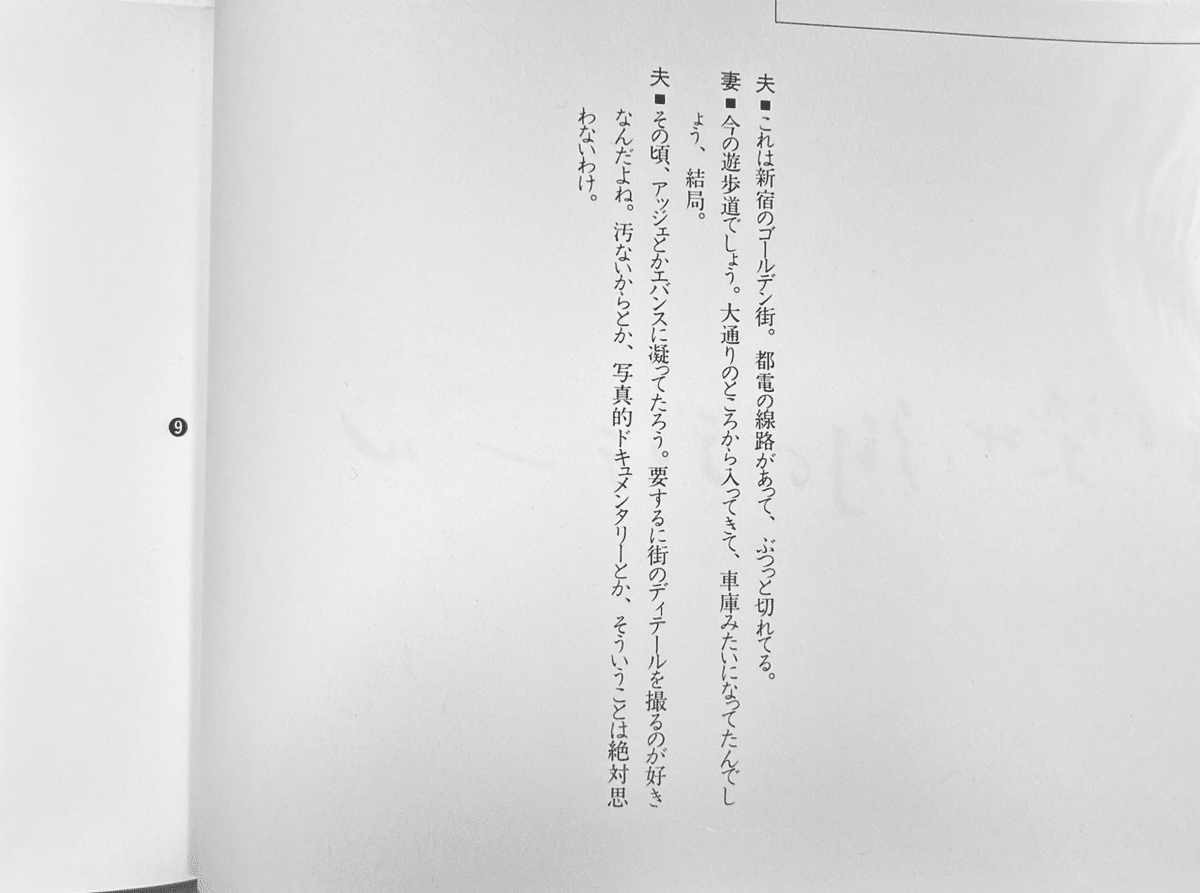 夫■これは新宿のゴールデン街。都電の線路があって、ぶつっと切れてる。
妻■今の遊歩道でしょう。大通りのところから入ってきて、車庫みたいになってたんでし
ょう、結局。
夫■その頃、アッジェとかエバンスに凝ってたろう。要するに街のディテールを撮るのが好き
なんだよね。汚ないからとか、写真的ドキュメンタリーとか、そういうことは絶対思
わないわけ。
9